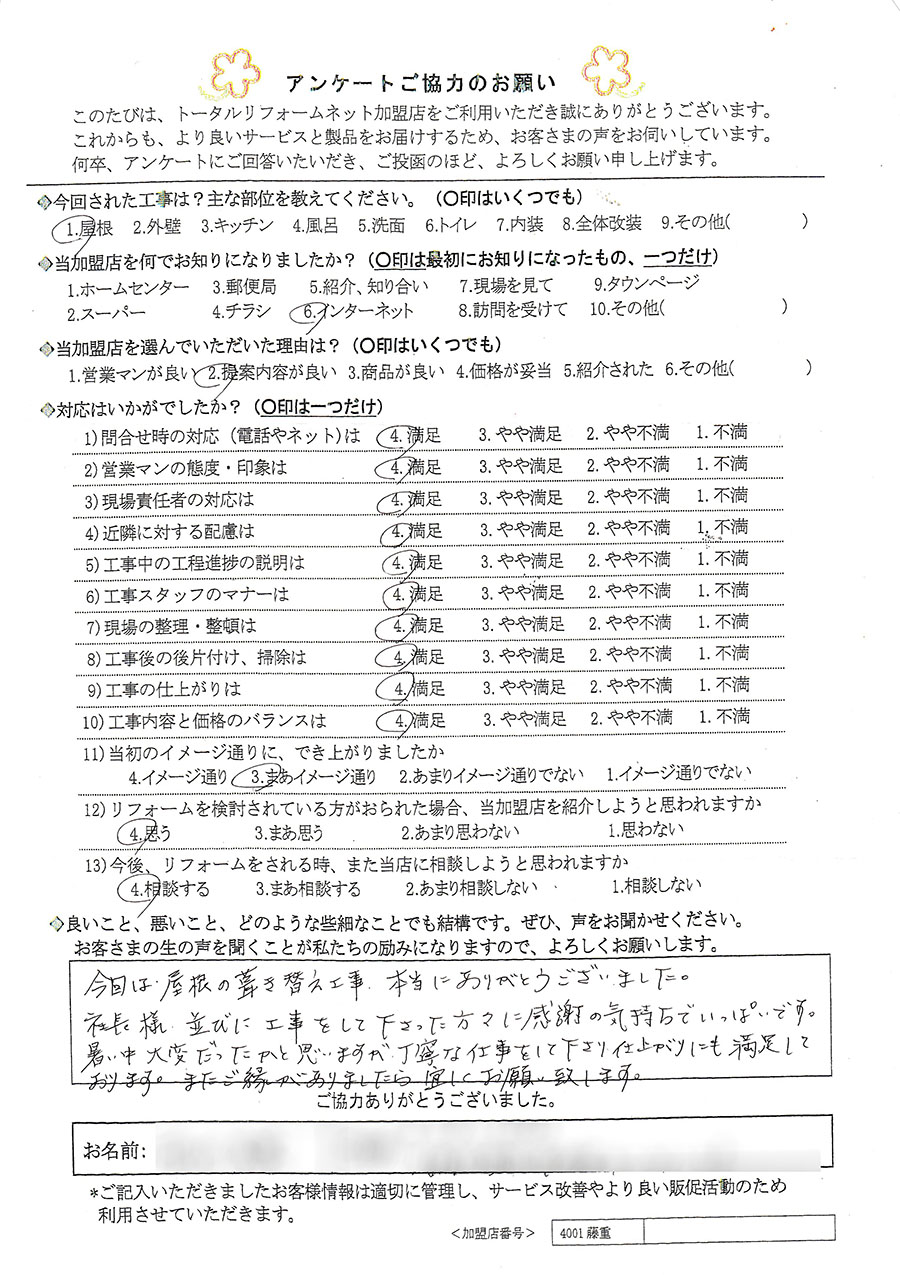 アンケートご協力のお願い
このたびは、トータルリフォームネット加盟店をご利用いただき誠にありがとうございます。
これからも、より良いサービスと製品をお届けするため、お客さまの声をお伺いしています。
何卒、アンケートにご回答いたいだき、ご投函のほど、よろしくお願い申し上げます。
◆今回された工事は？主な部位を教えてください。（〇印はいくつでも）
1.屋根 2.外壁 3.キッチン 4.風呂 5.洗面 6.トイレ 7.内装 8.全体改装 9.その他( )
◆当加盟店を何でお知りになりましたか？（〇印は最初にお知りになったもの、一つだけ）
1.ホームセンター 3.郵便局 5.紹介、知り合い 7.現場を見て 9.タウンページ
2.スーパー 4.チラシ 6.インターネット 8.訪問を受けて 10.その他( )
◆当加盟店を選んでいただいた理由は？（〇印はいくつでも）
1.営業マンが良い 2.提案内容が良い 3.商品が良い 4.価格が妥当 5.紹介された 6.その他( )
◆対応はいかがでしたか？（〇印は一つだけ）
1)問合せ時の対応（電話やネット）は 4.満足 3.やや満足 2.やや不満 1.不満
2)営業マンの態度・印象は 4.満足 3.やや満足 2.やや不満 1.不満
3)現場責任者の対応は 4.満足 3.やや満足 2.やや不満 1.不満
4)近隣に対する配慮は 4.満足 3.やや満足 2.やや不満 1.不満
5)工事中の工程進捗の説明は 4.満足 3.やや満足 2.やや不満 1.不満
6)工事スタッフのマナーは 4.満足 3.やや満足 2.やや不満 1.不満
7)現場の整理・整頓は 4.満足 3.やや満足 2.やや不満 1.不満
8)工事後の後片付け、掃除は 4.満足 3.やや満足 2.やや不満 1.不満
9)工事の仕上がりは 4.満足 3.やや満足 2.やや不満 1.不満
10)工事内容と価格のバランスは 4.満足 3.やや満足 2.やや不満 1.不満
11)当初のイメージ通りに、でき上がりましたか
4.イメージ通り 3.まあイメージ通り 2.あまりイメージ通りでない 1.イメージ通りでない
12)リフォームを検討されている方がおられた場合、当加盟店を紹介しようと思われますか
4.思う 3.まあ思う 2.あまり思わない 1.思わない
13)今後、リフォームをされる時、また当店に相談しようと思われますか
4.相談する 3.まあ相談する 2.あまり相談しない 1.相談しない
◆良いこと、悪いこと、どのような些細なことでも結構です。ぜひ、声をお聞かせください。
お客さまの生の声を聞くことが私たちの励みになりますので、よろしくお願いします。
今回は、屋根の葺き替え工事、本当にありがとうございました。
社長様、並びに工事をして下さった方々に感謝の気持ちでいっぱいです。
暑い中大変だったかと思いますが、丁寧な仕事をして下さり仕上がりにも満足して
おります。またご縁がありましたら宜しくお願い致します。
ご協力ありがとうございました。
お名前:
*ご記入いただきましたお客様情報は適切に管理し、サービス改善やより良い販促活動のため
利用させていただきます。
＜加盟店番号＞ 4001 藤重